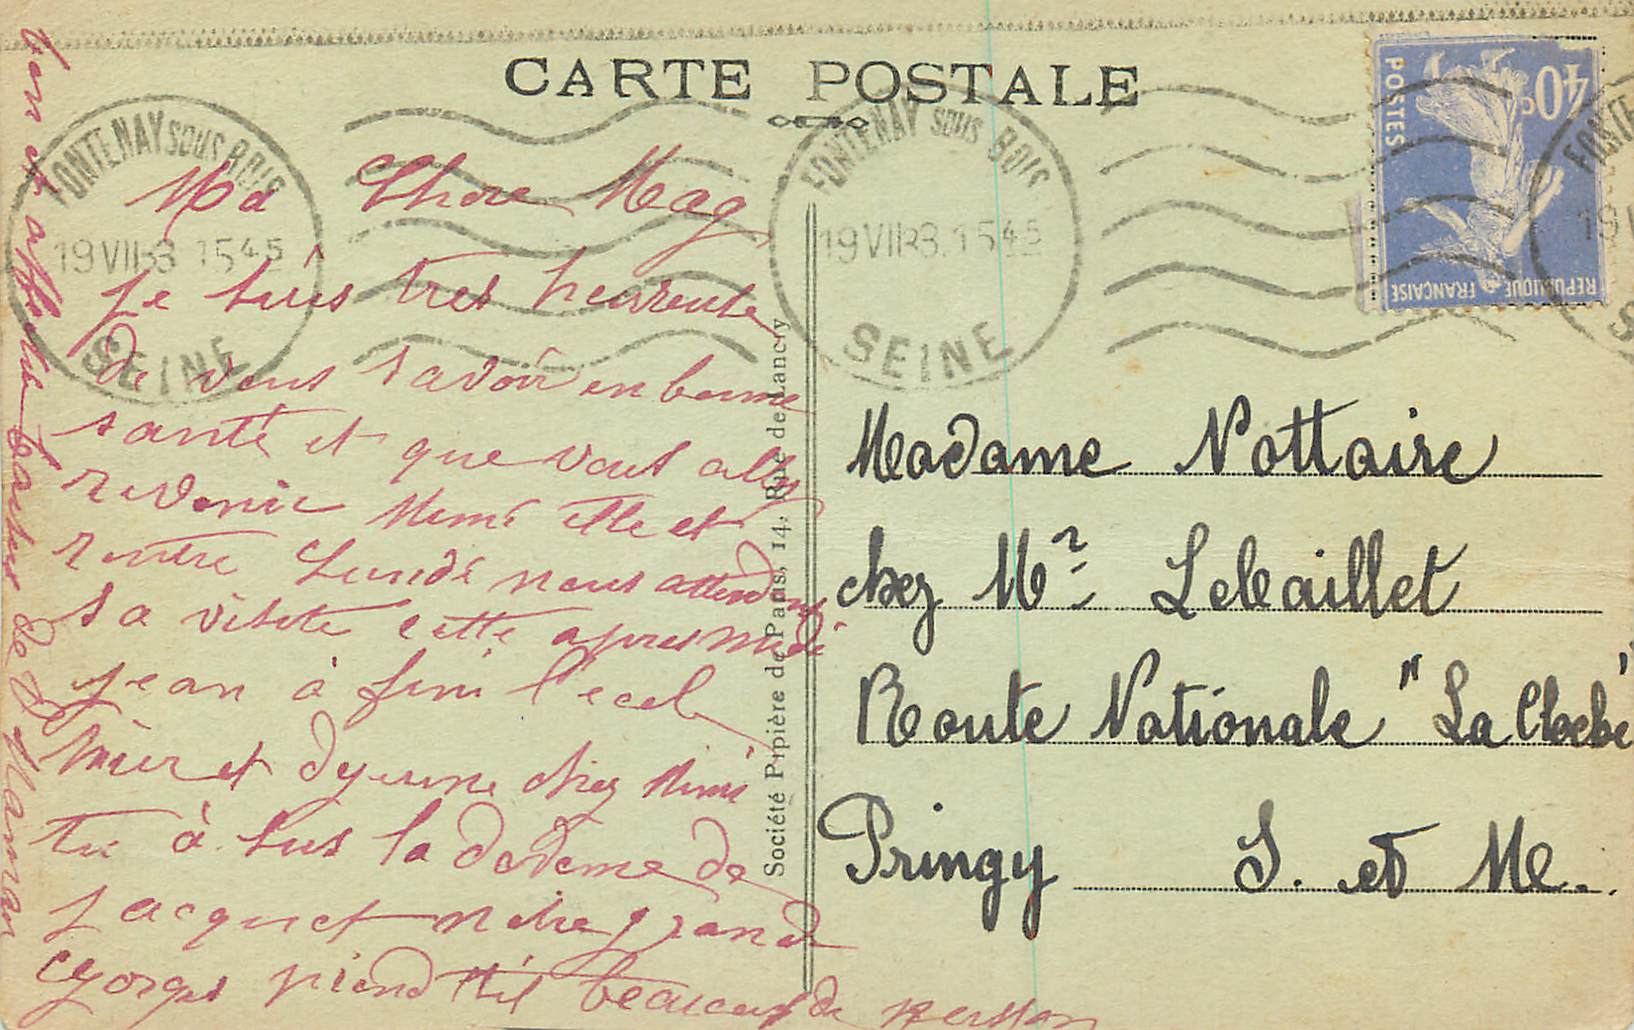 CARTE POSTALE
FONTENAY SOUS BOIS
19 VII 3 1545
SEINE
FONTENAY SOUS BOIS
19 VII 3 1545
SEINE
POSTES
40c
REPUBLIQUE FRANÇAISE
Ma Chere Mag
je suis tres heureuse
de vous savoir en bonne
santé et que vous allez
revenir Mimi elle et
rentre Lundi nous attendons
sa visite cette apres midi
jean à fini l'ecole
hier et dejeune chez Mimi
tu à sus la de de
jacquet notre grand
Gorges prend t'il beaucoup de
bon et affectueu baiser de Maman
Société Pipière de Paris, 14, Rue de Lancry
Madame Nottaire
chez Mr Lebaillet
Route Nationale "La Cloche"
Pringy S. et M.